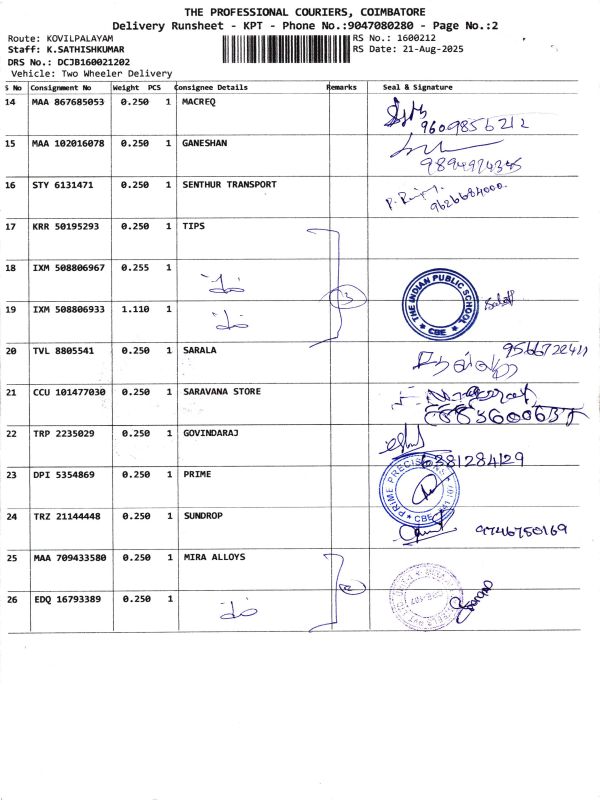 THE PROFESSIONAL COURIERS, COIMBATORE
Delivery Runsheet - KPT - Phone No.:9047080280 - Page No.:2
Route: KOVILPALAYAM RS No.: 1600212
Staff: K.SATHISHKUMAR RS Date: 21-Aug-2025
DRS No.: DCJB160021202
Vehicle: Two Wheeler Delivery
S No Consignment No Weight PCS Consignee Details Remarks Seal & Signature
14 MAA 867685053 0.250 1 MACREQ
9609856212
15 MAA 102016078 0.250 1 GANESHAN
9894974345
16 STY 6131471 0.250 1 SENTHUR TRANSPORT
9626684000.
17 KRR 50195293 0.250 1 TIPS
18 IXM 508806967 0.255 1
3
THE INDIAN PUBLIC SCHOOL
* CBE *
19 IXM 508806933 1.110 1
20 TVL 8805541 0.250 1 SARALA
9566722411
21 CCU 101477030 0.250 1 SARAVANA STORE
22 TRP 2235029 0.250 1 GOVINDARAJ
6381284129
23 DPI 5354869 0.250 1 PRIME
PRIME PRECISIONS
* CBE
24 TRZ 21144448 0.250 1 SUNDROP
9746750169
25 MAA 709433580 0.250 1 MIRA ALLOYS
2
26 EDQ 16793389 0.250 1